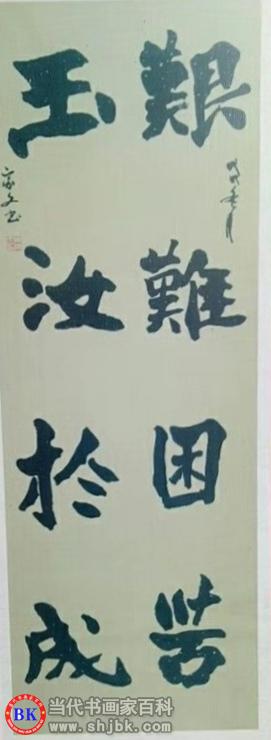 艱難困苦
玉汝於成
BK
当代书画家百科
www.shjbk.com